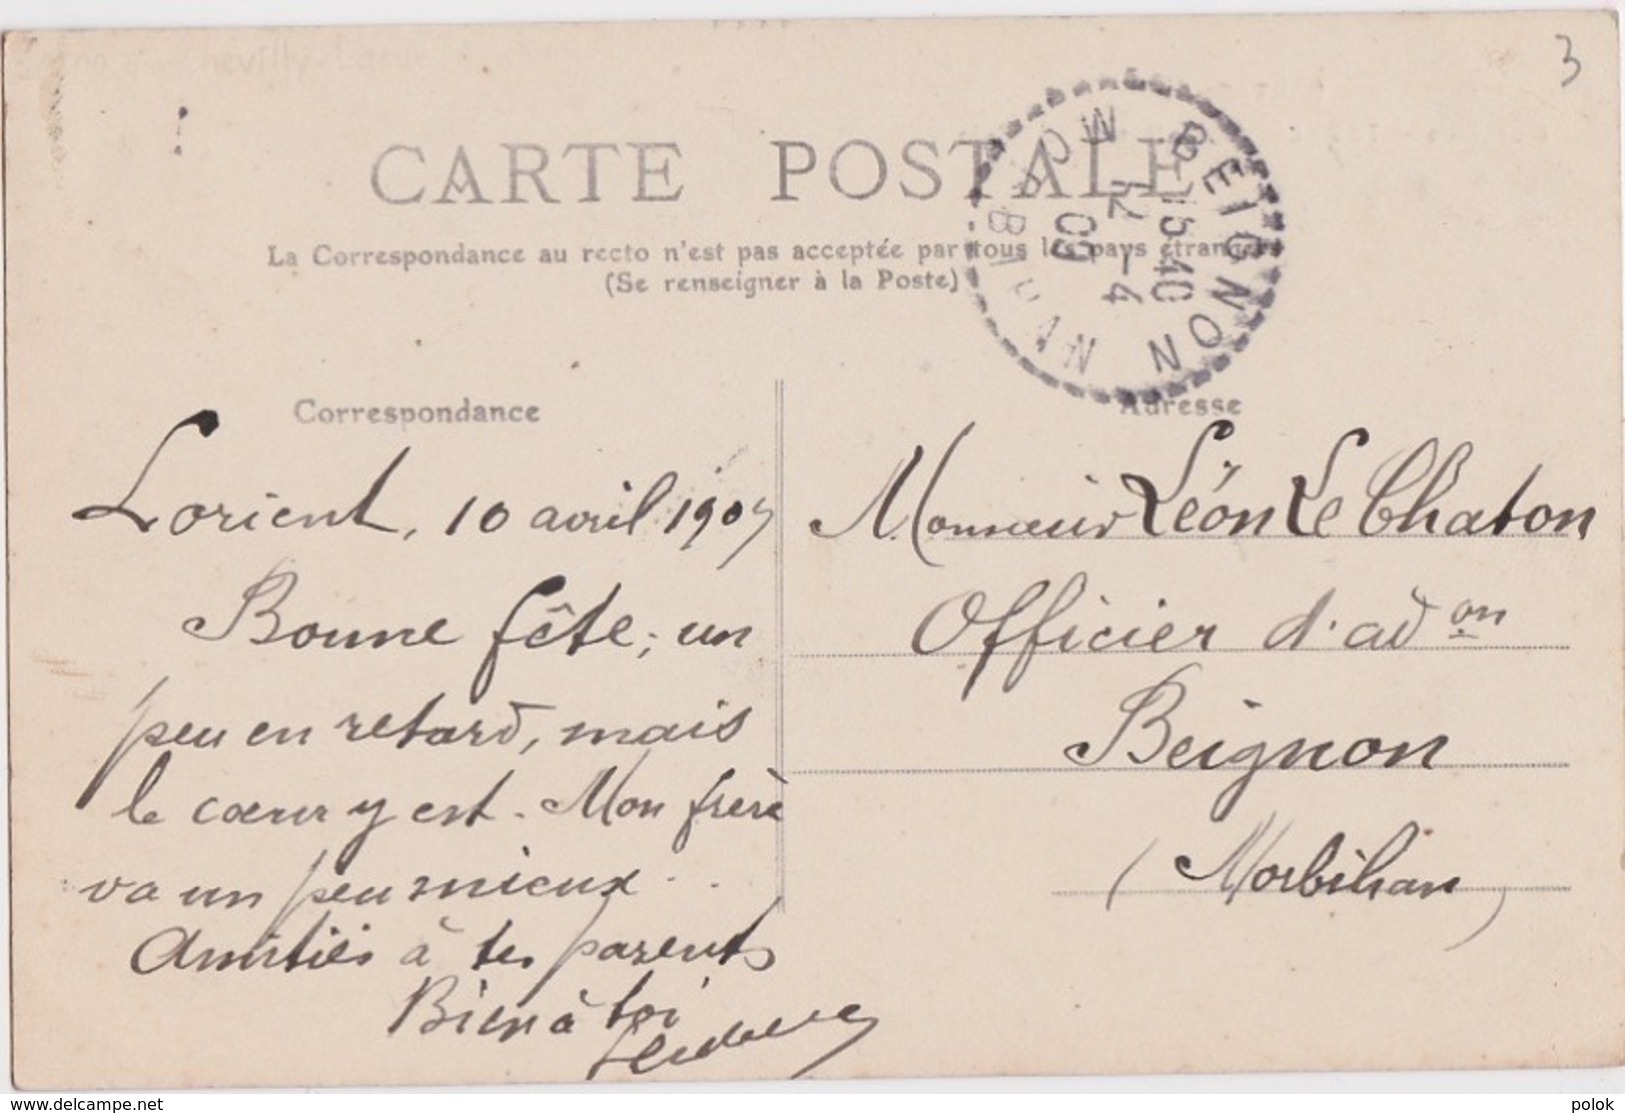 3
CARTE POSTALE
La Correspondance au recto n'est pas acceptée par tous les pays étrangers
(Se renseigner à la Poste)
BEIGNON
15 40
12 - 4
09
MORBIHAN
Correspondance
Lorient, 10 avril 1909
Bonne fête, un
peu en retard, mais
le cœur y est. Mon frère
va un peu mieux.
Amitiés à tes parents
Bien à toi
Adresse
Monsieur Léon Le Châton
Officier d'adon
Beignon
(Morbihan)
www.delcampe.net
polok